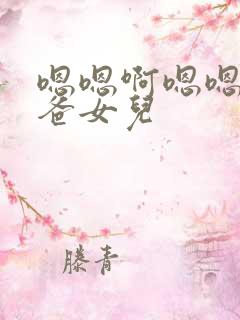 嗯嗯啊嗯嗯
爸女兒
滕青